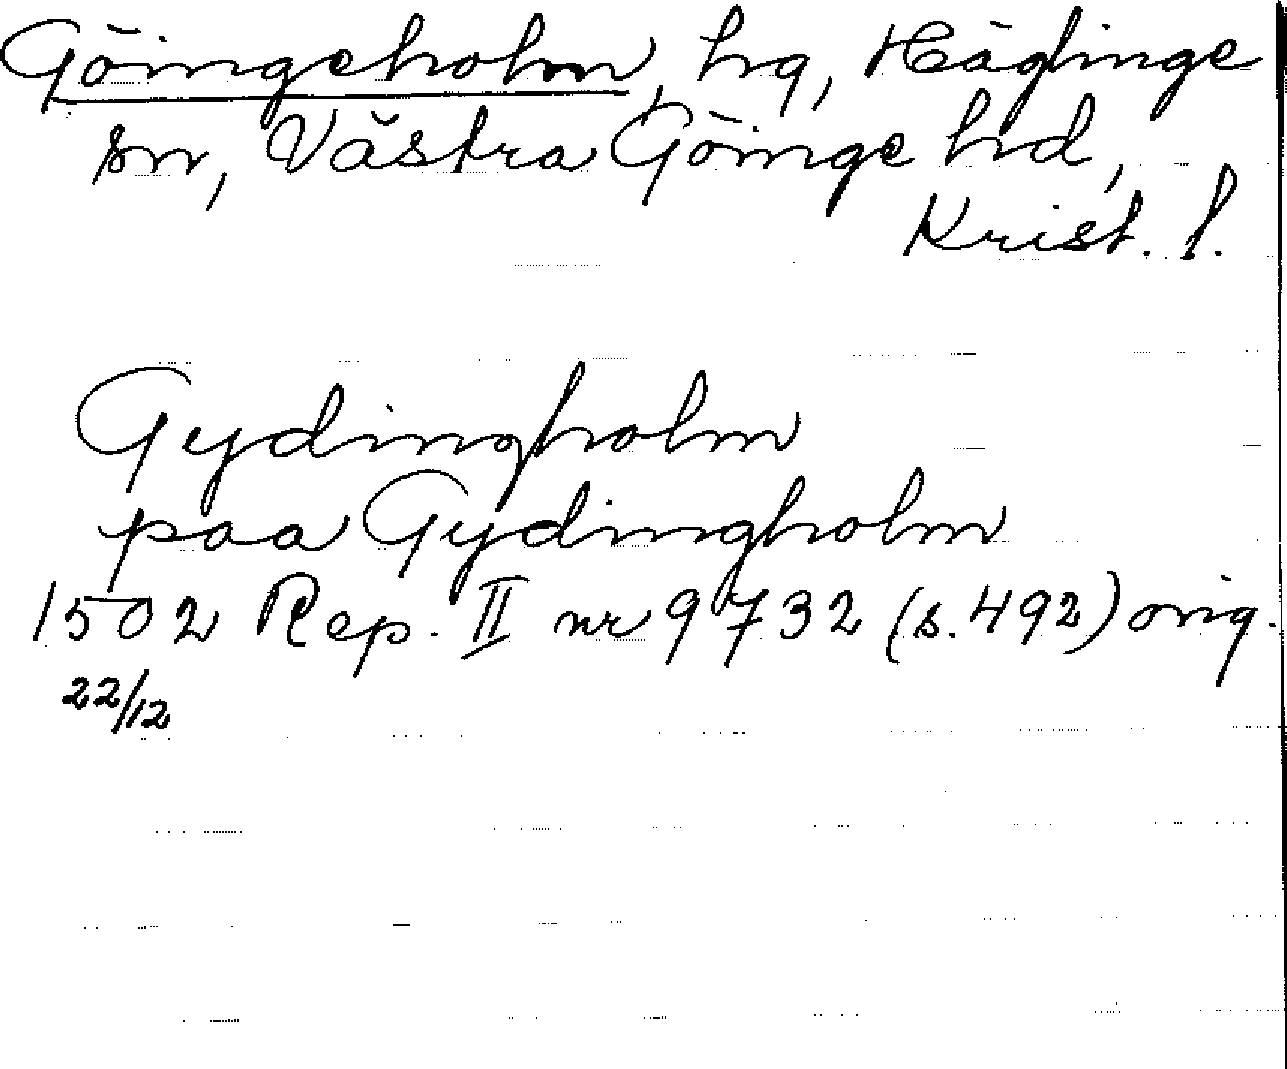 Göingeholm, hg, Häglinge
sn, Västra Göinge hd,
Krist. l.
Gydingholm
paa Gydingholm
1502 Rep. II nr 9732 (s. 492) orig.
22/12